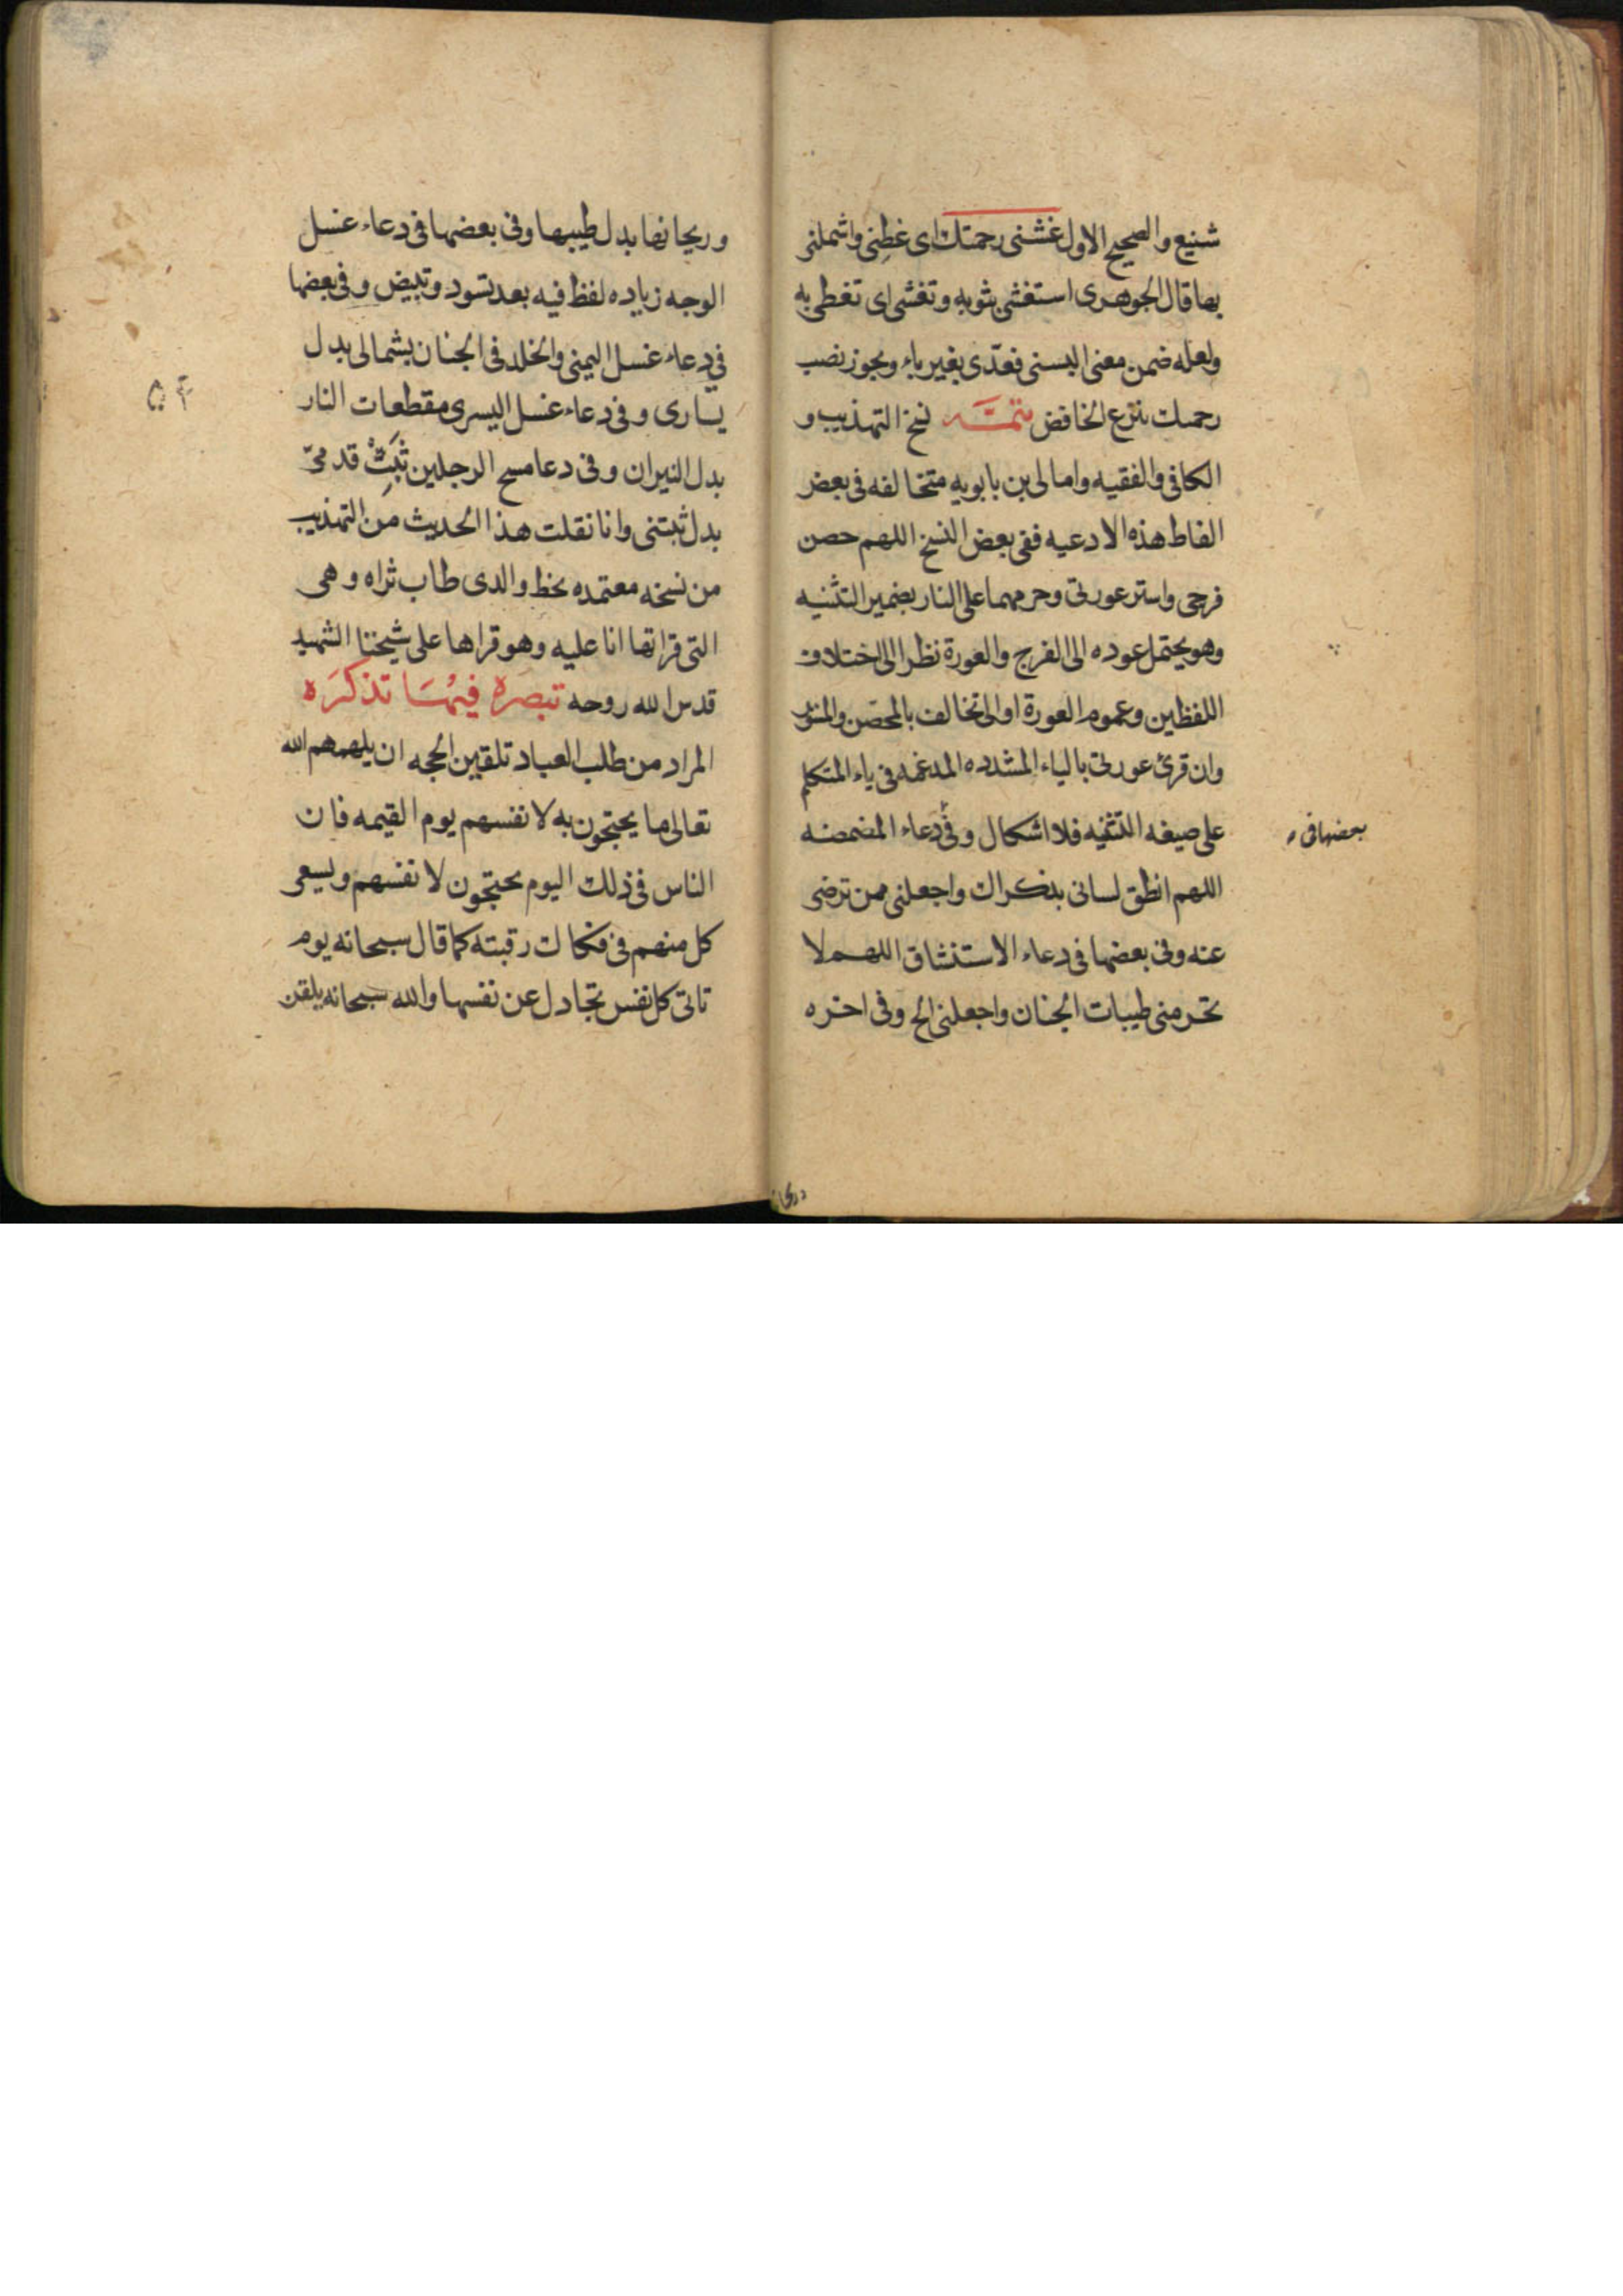 شنیع والصحیح الاول غشنی رحمتك ای غطنی واشملنی
بها قال الجوهری استغشی بثوبه وتغشی ای تغطی به
ولعله ضمن معنی البسنی فعدّی بغیر باء ویجوز نصب
رحمتك بنزع الخافض تتمّه نسخ التهذیب و
الکافی والفقیه وامالی بن بابویه متخالفه فی بعض
الفاظ هذه الادعیه ففی بعض النسخ اللهم حصن
فرجی واستر عورتی وحرمهما علی النار بضمیر التثنیه
وهو یحتمل عوده الی الفرج والعورة نظرا الی اختلاف
اللفظین وعموم العورة او الی تخالف بالمحصن والمستور
وان قرئ عورتی بالیاء المشدده المدغمه فی یاء المتکلم
علی صیغه التثنیه فلا اشکال وفی دعاء المضمضه
بعضها فی
اللهم انطق لسانی بذکراك واجعلنی ممن ترضی
عنه وفی بعضها فی دعاء الاستنشاق اللهم لا
تحرمنی طیبات الجنان واجعلنی الخ وفی اخره
وریحانها بدل طیبها وفی بعضها فی دعاء غسل
الوجه زیاده لفظ فیه بعد تسود وتبیض وفی بعضها
فی دعاء غسل الیمنی والخلد فی الجنان بشمالی بدل
یساری وفی دعاء غسل الیسری مقطعات النار
۵۴
بدل النیران وفی دعا مسح الرجلین ثَبِّتْ قدمیّ
بدل ثبتنی وانا نقلت هذا الحدیث من التهذیب
من نسخه معتمده بخط والدی طاب ثراه وهی
التی قراتها انا علیه وهو قراها علی شیخنا الشهید
قدس الله روحه تبصره فیها تذکره
المراد من طلب العباد تلقین الحجه ان یلهمهم الله
تعالی ما یحتجون به لانفسهم یوم القیمه فان
الناس فی ذلك الیوم یحتجون لانفسهم ویسعی
کل منهم فی فکاك رقبته کما قال سبحانه یوم
تاتی کل نفس تجادل عن نفسها والله سبحانه یلقن